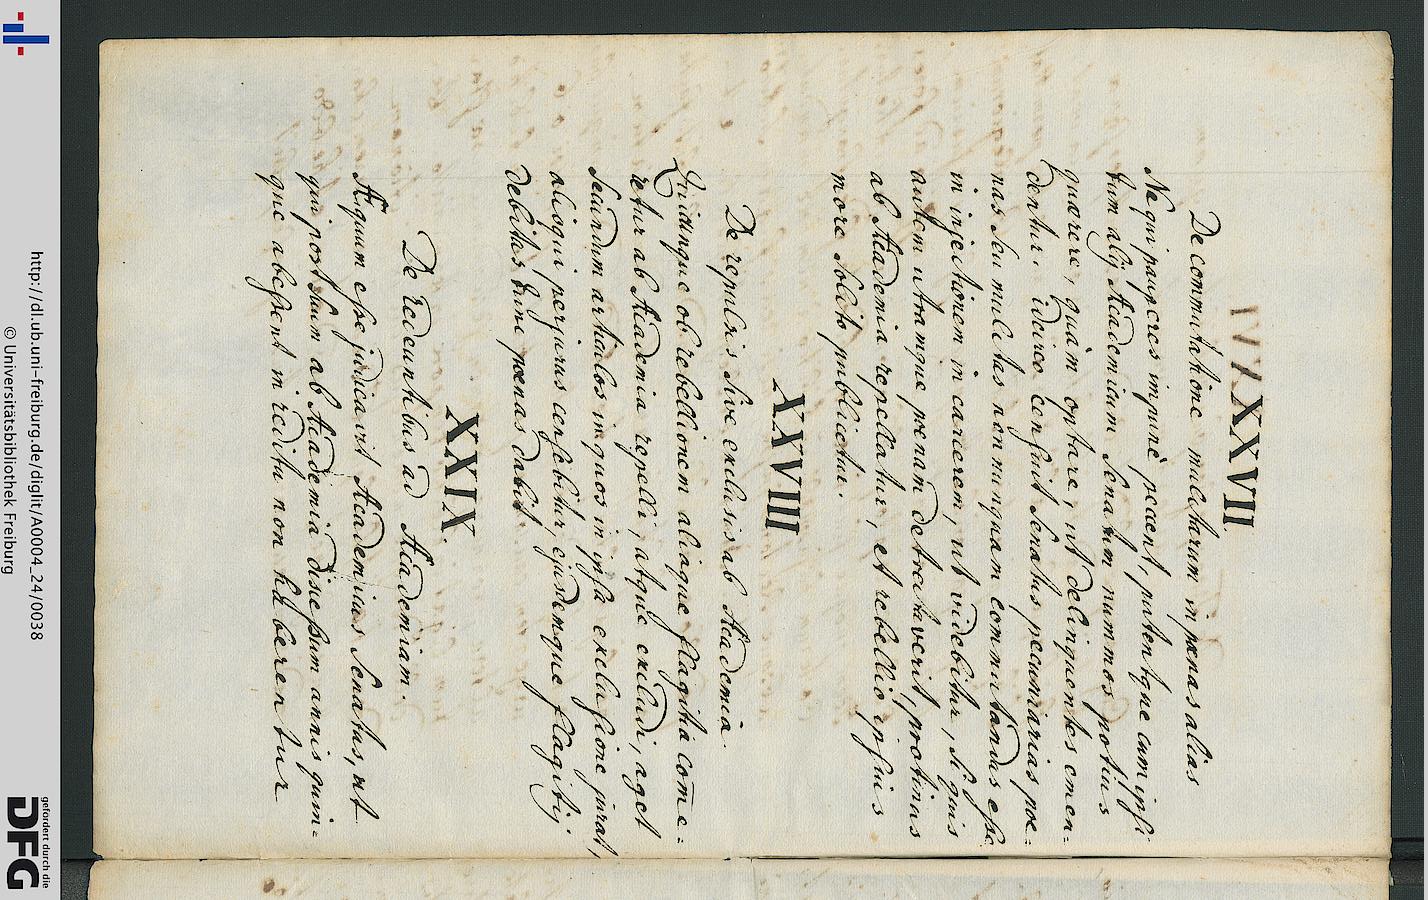 XXVII
De commutatione mulctarum in pœnas alias
Ne qui pauperes impunè peccent, potentque cum ipsi
tum alij Academicum Senatum nummos potius
quærere, quàm optare, ut delinquentes emen-
dentur: idcirco censuit Senatus pecuniarias poe=
nas seu mulctas nonnunquam commutandas esse
in injectionem in carcerem, ut videbitur, Si quis
autem utramque poenam detrectaverit, protinus
ab Academia repellatur, et rebellio ipsius
more solito publicetur.
XXVIII
De repulsis sive exclusis ab Academia.
Quicunque ob rebellionem aliaque flagitia com̄e=
retur ab Academia repelli, atque excludi, aget
secundum articulos in quos in ipsa exclusione jurat,
alioqui perjurus censebitur, ejusdemque flagitij
debitas hinc poenas dabit.
XXIX.
De redeuntibus ad Academiam.
Æquum esse judicavit Academicus Senatus, ut
qui postquam ab Academia discessum annis quin=
que abessent in reditu non haberentur
http://dl.ub.uni-freiburg.de/diglit/A0004_24/0038
© Universitätsbibliothek Freiburg
gefördert durch die
DFG